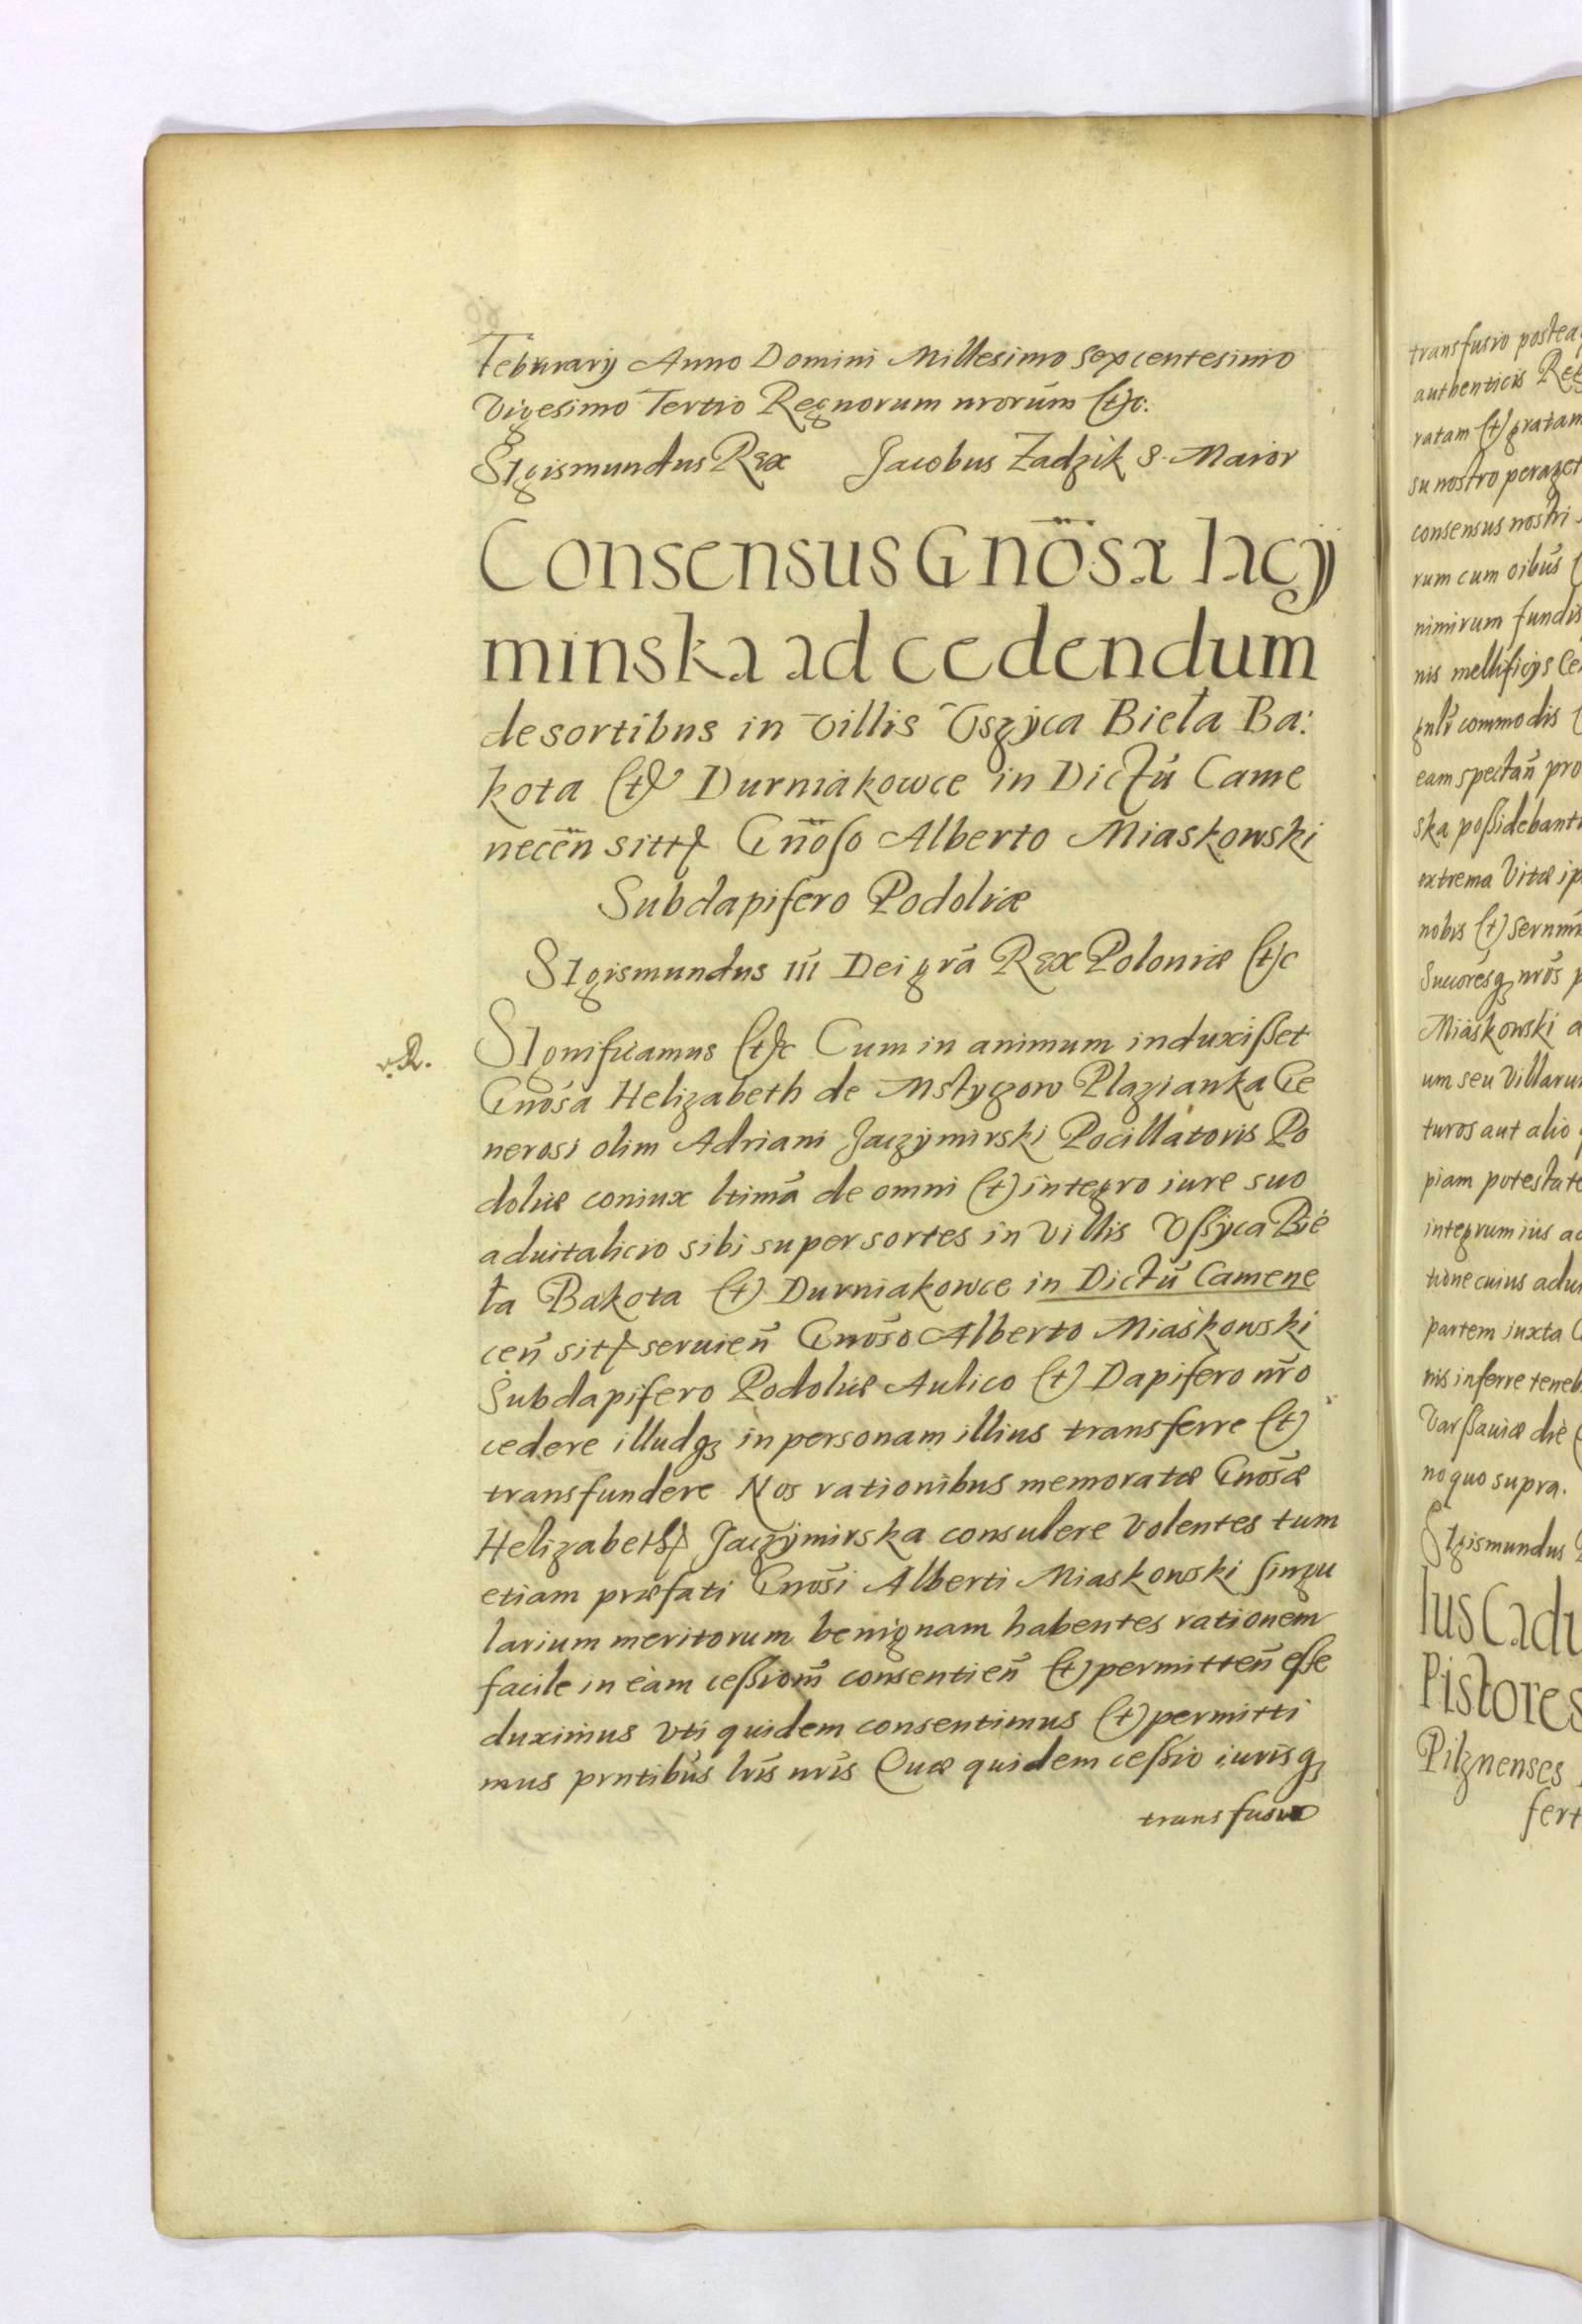 Februarij Anno Domini Millesimo Sexcentesimo
Vigesimo Tertio Regnorum nrorũm (t)c:
SIgismundus Rex Jacobus Zadzik S. Maior
Consensus Gnõsa Iacy
minska ad cedendum
de sortibus in Villis Vszyca Bieła Ba:
kota (t) Durniakowce in Dictũ Came
necẽn sitt Gñoso Alberto Miaskowski
Subdapifero Podoliæ
SIgismundus III Dei grã Rex Poloniæ (t)c
SIgnificamus (t)c Cum in animum induxißet
Gnõsa Helizabeth de Mstyczow Plazianka Ge
nerosi olim Adriani Jaczymirski Pocillatoris Po
doliæ coniux ltimã de omni (t) integro iure suo
aduitalicio sibi super sortes in Villis Vßyca Bie
ła Bakota (t) Durniakowce in Dictũ Camene
ceñ sit seruieñ Gnõso Alberto Miaskowski
Subdapifero Podoliæ Aulico (t) Dapifero nr̃o
cedere illudq in personam illius transferre (t)
transfundere Nos rationibus memoratæ Gnõsæ
Helizabeth Jaczymirska consulere Volentes tum
etiam præfati Gnõsi Alberti Miaskowski singu
larium meritorum benignam habentes rationem
facile in eam ceßiom̃ consentieñ (t) permitteñ eße
duximus Vti quidem consentimus (t) permitti
mus prntibũs lrĩs nrĩs Quæ quidem ceßio iurisq
transfusio
r. R.
transfusio postea
authenticis Reg
ratam (t) gratam
su nostro peraget
consensus nostri
rum cum oibũs (
nimirum fundis
nis mellificijs Ce
gnlĩ commodis (
eam spectañ pro
ska poßidebant
extrema Vitæ ip
nobis (t) Sernmĩ
Succoresq nrõs p
Miaskowski a
um seu Villaru
turos aut alio
piam potestate
integrum ius ac
tione cuius adui
partem iuxta C
nis inferre teneb
Varßauiæ die (
no quo supra.
SIgismundus R
Ius Cadu
Pistores
Pilznenses
fert